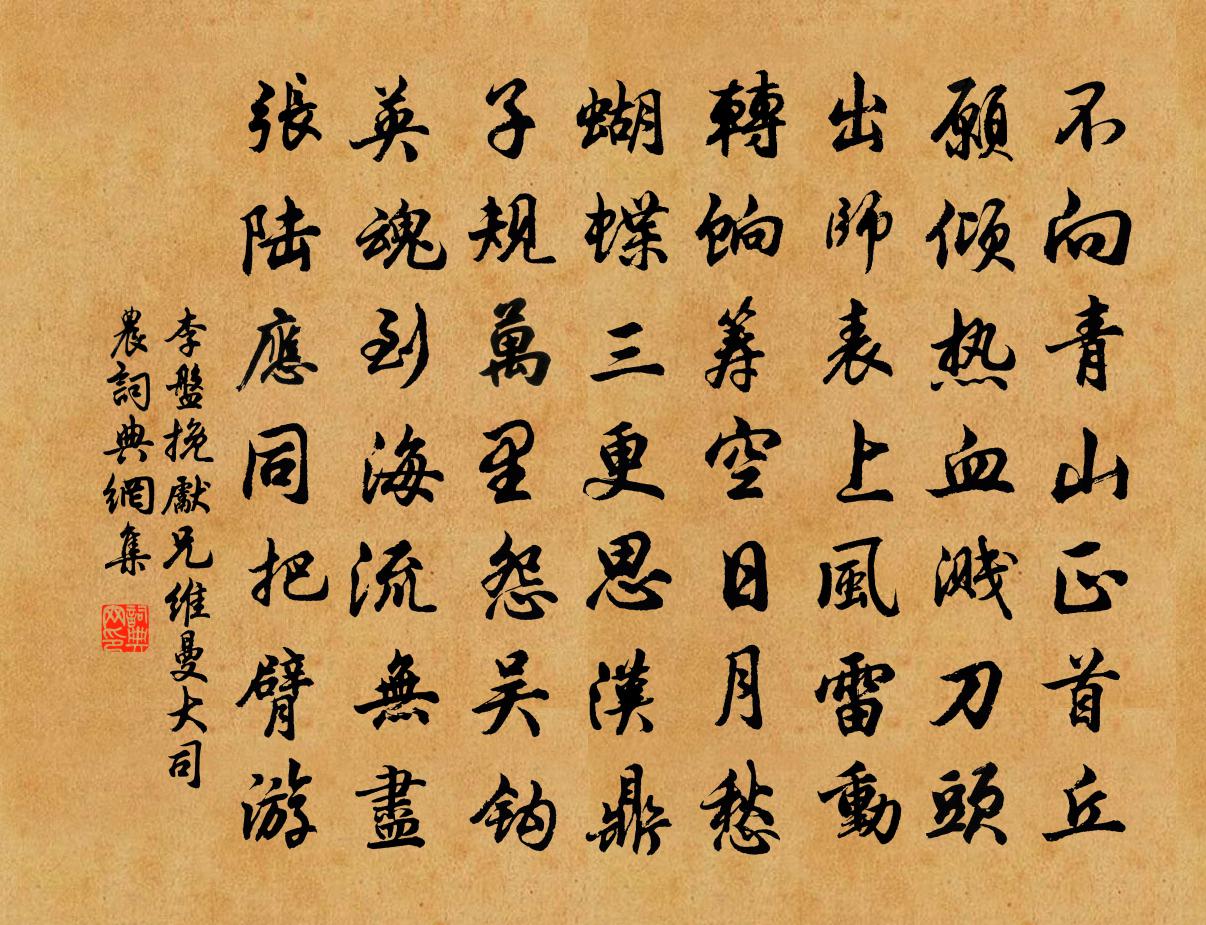 不向青山正首丘
願傾热血溅刀頭
出師表上風雷動
轉餉筹空日月愁
蝴蝶三更思漢鼎
子規萬里怨吴鈎
英魂到海流無盡
張陆應同把臂游
李盤挽獻兄維曼大司
農詞典網集
詞典
网印